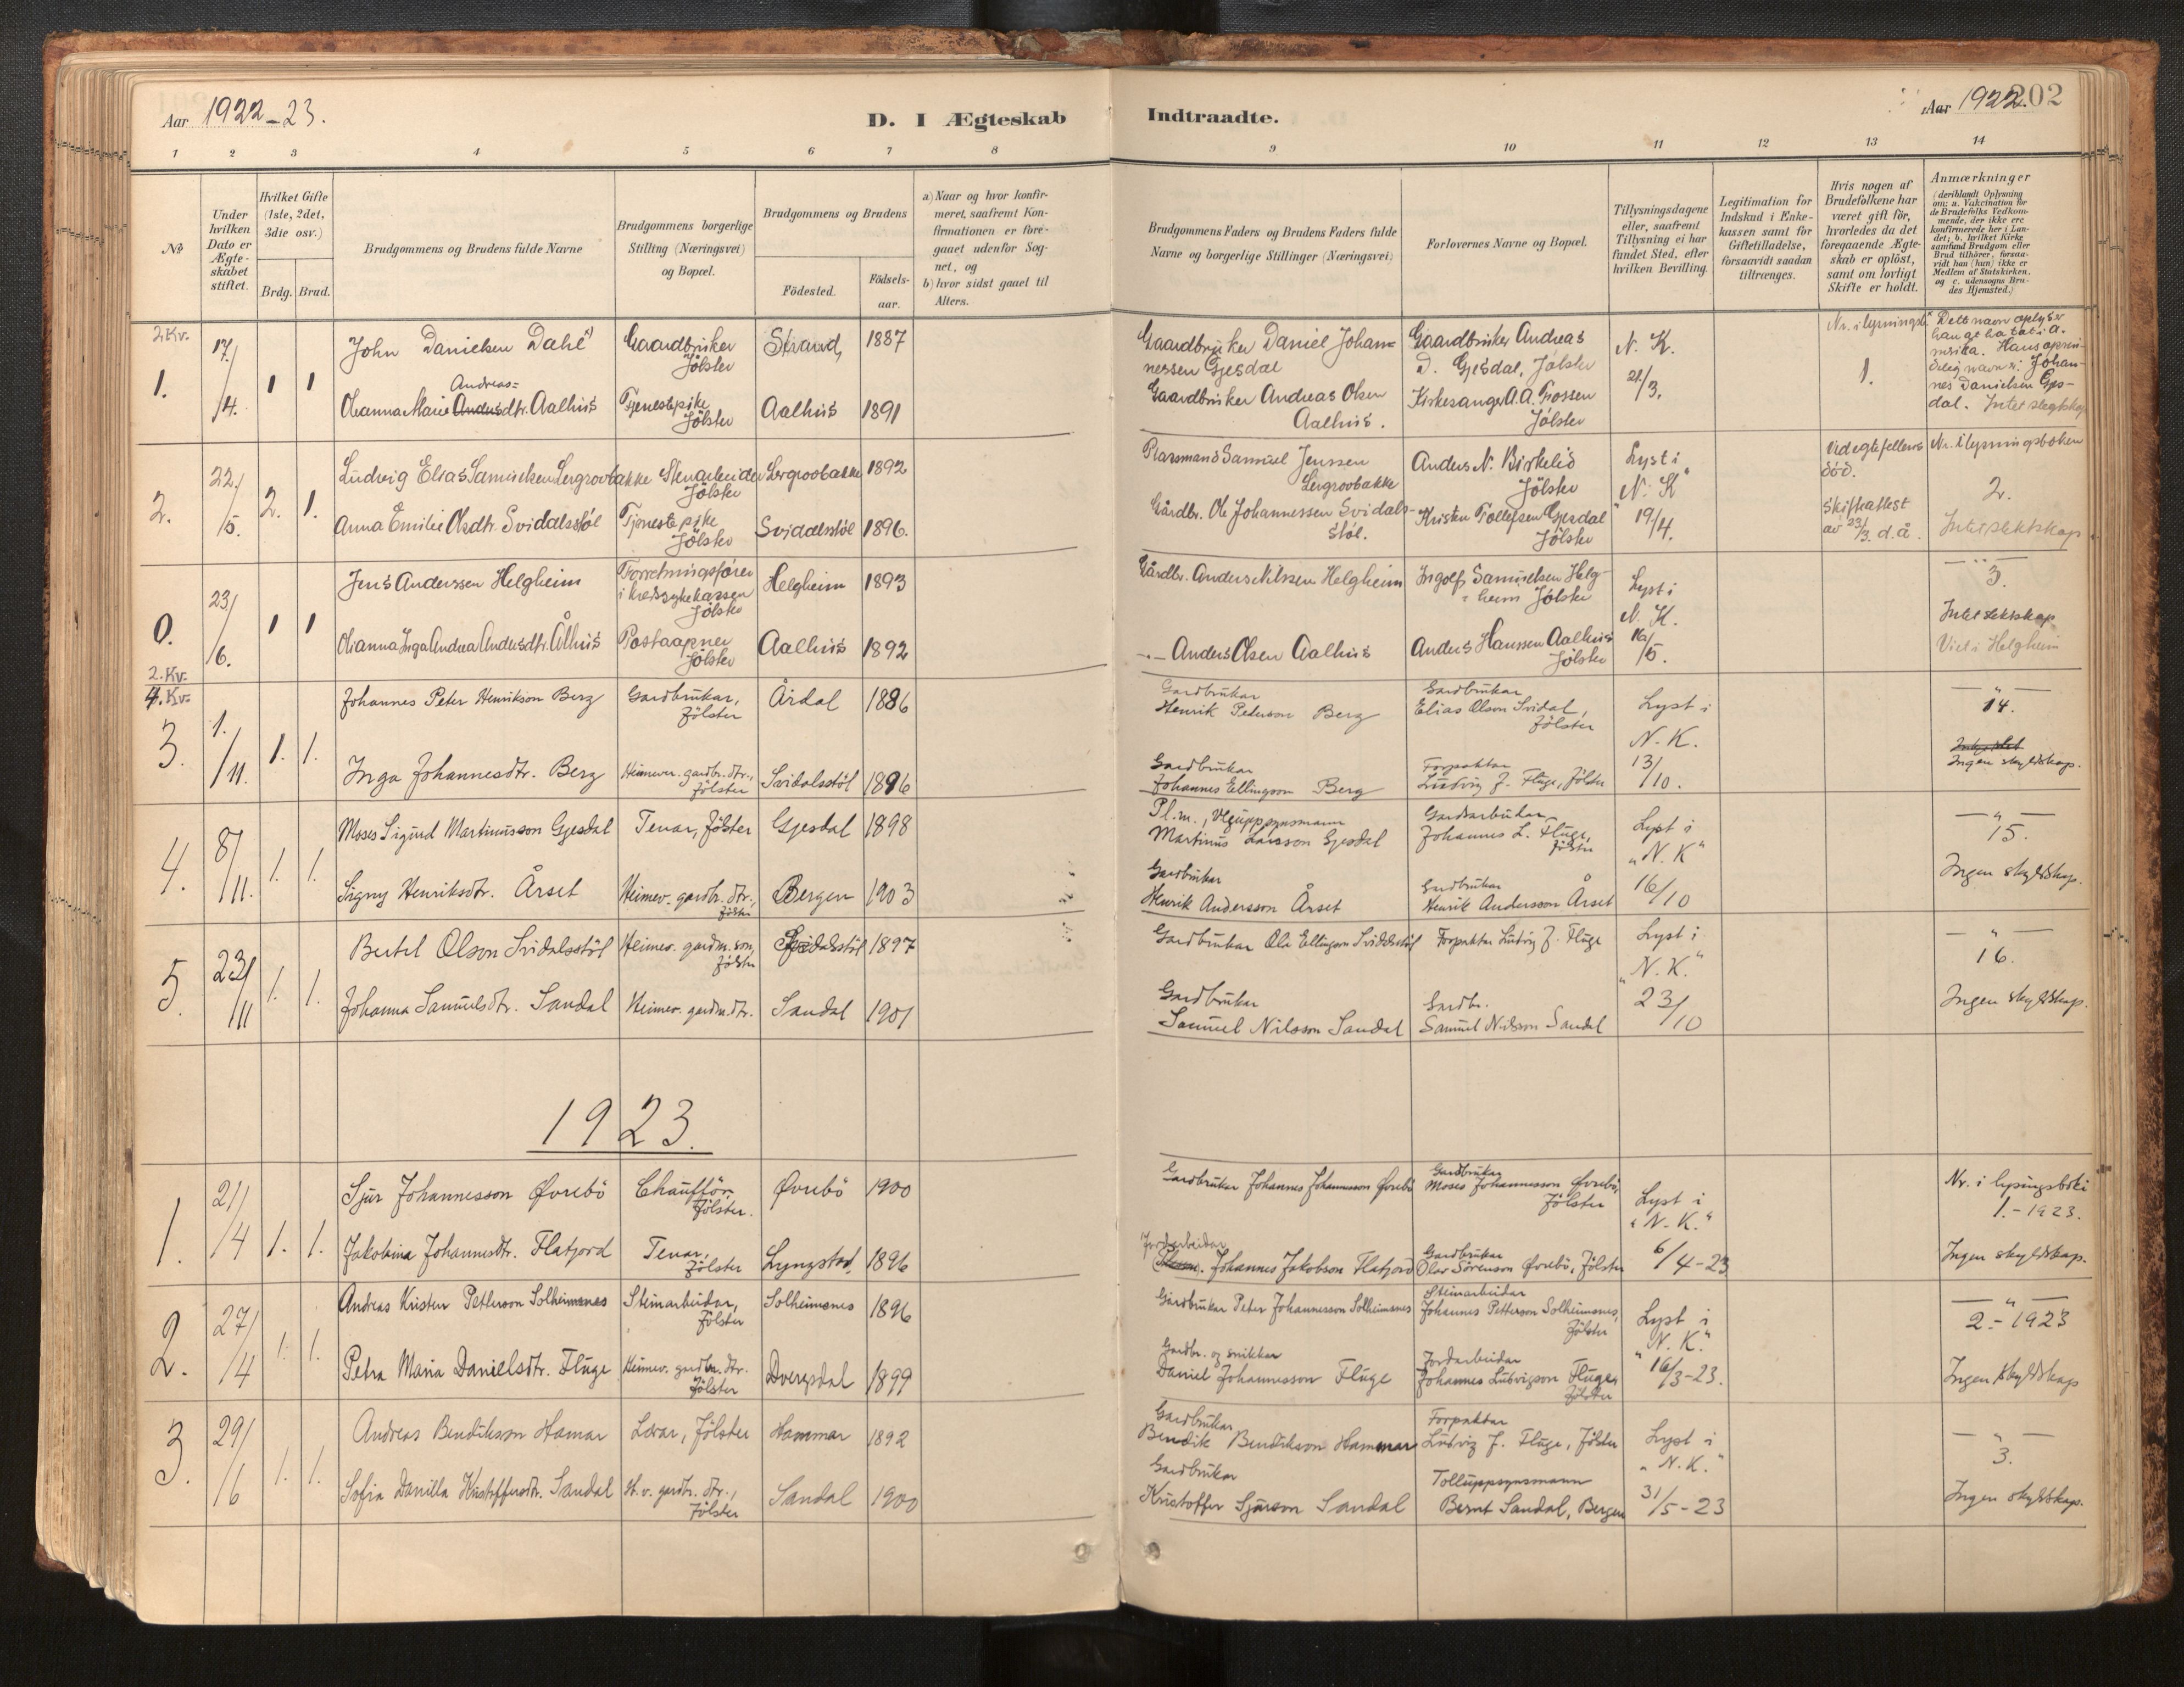 Aar 1922-23.
D. I Ægteskab
Indtraadte.
Aar 1922.
202
1 2 3 4 5 6 7 8 9 10 11 12 13 14
№
Under hvilken Dato er Ægteskabet stiftet.
Hvilket Gifte (1ste, 2det, 3die osv.)
Brdg. Brud.
Brudgommens og Brudens fulde Navne
Brudgommens borgerlige Stilling (Næringsvei) og Bopæl.
Brudgommens og Brudens
Födested.
Födselsaar.
a) Naar og hvor konfirmeret, saafremt Konfirmationen er foregaaet udenfor Sognet, og
b) hvor sidst gaaet til Alters.
Brudgommens Faders og Brudens Faders fulde Navne og borgerlige Stillinger (Næringsvei)
Forlovernes Navne og Bopæl.
Tillysningsdagene eller, saafremt Tillysning ei har fundet Sted, efter hvilken Bevilling.
Legitimation for Indskud i Enkekassen samt for Giftetilladelse, forsaavidt saadan tiltrænges.
Hvis nogen af Brudefolkene har været gift för, hvorledes da det foregaaende Ægteskab er oplöst, samt om lovligt Skifte er holdt.
Anmærkninger
(deriblandt Oplysning om: a. Vakcination for de Brudefolks Vedkommende, der ikke ere konfirmerede her i Landet; b. hvilket Kirkesamfund Brudgom eller Brud tilhörer, forsaavidt han (hun) ikke er Medlem af Statskirken, og c. udensogns Brudes Hjemsted.)
2. Kv.
1. 17/4. 1 1
John Danielsen Dahl Gaardbruker Jölster Strand, 1887
Gaardbruker Daniel Johannessen Gjesdal
Gaardbruker Andreas D. Gjesdal, Jölster
N. K. 21/3.
Nr. i lysningsb. 1.
Dette navn oplyser han at ha tat i Amerika. Hans oprindelig navn er Johannes Danielsen Gjesdal. Intet slegtskap
Andreas=
Olianna Marie Andersdtr. Aalhus Tjenestepike Jölster Aalhus 1891
Gaardbruker Andreas Olsen Aalhus.
Kirkesanger A. A. Fossen Jölster
2. 22/5. 2. 1.
Ludvig Elias Samuelsen Lergrovbakke Stenarbeider Jölster Lergrovbakke 1892
Plassmand Samuel Jenssen Lergrovbakke
Anders N. Birkelid Jölster
Lyst i "N. K" 19/4.
Ved egtefellens död. Skifteattest av 23/3. d.å.
Nr. i lysningsboken 2. Intet slektskap
Anna Emilie Olsdtr. Svidalsstöl Tjenestepike Jölster Svidalsstöl 1896.
Gårdbr. Ole Johannessen Svidalsstöl.
Kristen Tollefsen Gjesdal Jölster
0. 23/6. 1 1
Jens Anderssen Helgheim Forretningsförer i kredssykekassen Jölster Helgheim 1893
Gårdbr. Anders Nilssen Helgheim
Ingolf Samuelsen Helgheim Jölster
Lyst i N. K. 16/5.
— " — 3. Intet slektskap Viet i Helgheim
Olianna Inga Andrea Andersdtr. Ålhus Postaapner Jölster Aalhus 1892
-.- Anders Olsen Aalhus
Anders Hanssen Aalhus Jölster
2. Kv.
4. Kv.
3. 1./11. 1. 1.
Johannes Peter Henrikson Berg Gardbrukar, Jölster Årdal 1886
Gardbrukar Henrik Pederson Berg
Gardbrukar Elias Olson Svidal, Jölster
Lyst i N. K. 13/10.
— " — 14. Ingen skyldskap.
Inga Johannesdtr. Berg Heimever. gardbr. dtr., Jölster Svidalsstöl 1896
Gardbrukar Johannes Ellingson Berg
Forpaktar Ludvig J. Fluge, Jölster
4. 8/11. 1. 1.
Moses Sigurd Martinusson Gjesdal Tenar, Jölster Gjesdal 1898
Pl.m., Veguppsynsmann Martinus Larsson Gjesdal
Gardsarbeidar Johannes L. Fluge, Jölster
Lyst i "N. K" 16/10
— " — 15. Ingen skyldskap.
Signy Henriksdtr. Årset Heimev. gardbr. dtr., Jölster Bergen 1903
Gardbrukar Henrik Andersson Årset
Gardbrukar Henrik Andersson Årset
5. 23/11 1. 1.
Bertel Olson Svidalsstöl Heimev. gardm. son, Jölster Svidalsstöl 1897
Gardbrukar Ola Ellingson Svidalsstöl
Forpaktar Ludvig J. Fluge
Lyst i "N. K." 23/10
— " — 16. Ingen skyldskap.
Johanna Samuelsdtr. Sandal Heimev. gardm. dtr. Sandal 1901
Gardbrukar Samuel Nilsson Sandal
Gardbr. Samuel Nilsson Sandal
1923.
1. 21/4 1. 1.
Sjur Johannesson Øvrebö Chaufför, Jölster. Øvrebö 1900
Gardbrukar Johannes Johannesson Øvrebö
Gardbrukar Moses Johannesson Øvrebö, Jölster
Lyst i "N. K." 6/4-23
Nr. i lysingsboki 1.-1923. Ingen skyldskap.
Jakobina Johannesdtr. Flatjord Tenar, Jölster Lyngstad, 1896
Jordarbeidar Johannes Jakobson Flatjord
Gardbrukar Olav Sörenson Øvrebö, Jölster
2. 27/4 1. 1.
Andreas Kristen Petterson Solheimsnes Steinarbeidar, Jölster Solheimsnes 1896
Gardbrukar Peter Johannesson Solheimsnes
Steinarbeidar Johannes Petterson Solheimsnes, Jölster
Lyst i "N. K." 16/3-23.
— " — 2.-1923 Ingen skyldskap
Petra Maria Danielsdtr. Fluge Heimev. gardbr. dtr. Jölster Dvergsdal 1899
Gardbr. og snikkar Daniel Johannesson Fluge
Jordarbeidar Johannes Ludvigson Fluge, Jölster
3. 29/6 1. 1.
Andreas Bendikson Hamar Lærar, Jölster Hammar 1892
Gardbrukar Bendik Bendikson Hammar
Forpaktar Ludvig J. Fluge, Jölster
Lyst i "N. K." 31/5-23
— " — 3. Ingen skyldskap.
Sofia Danilla Kristoffersdtr. Sandal H. v. gardbr. dtr., Jölster Sandal 1900
Gardbrukar Kristoffer Sjurson Sandal
Tolluppsynsmann Bernt Sandal, Bergen